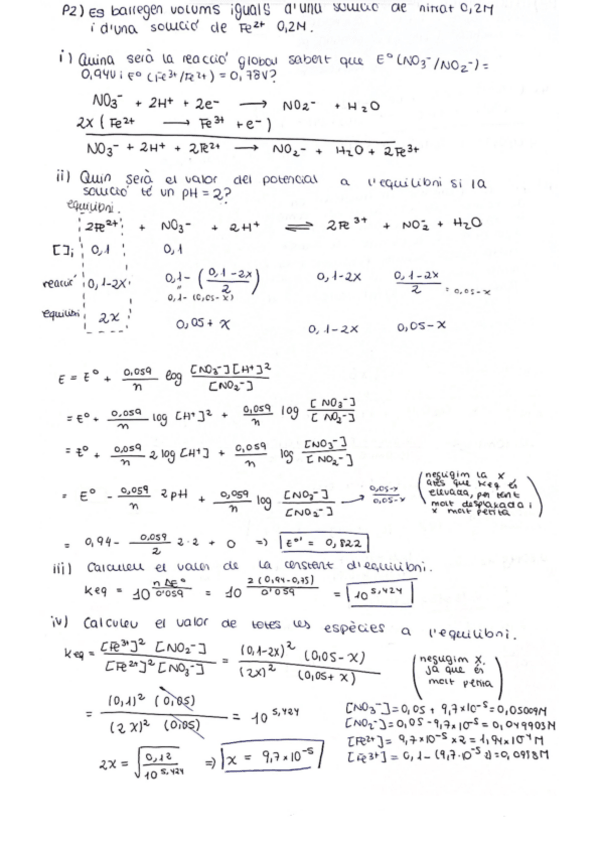 P2) Es barregen volums iguals d'una solució de nitrat 0,2M
i d'una solució de Fe2+ 0,2M.
i) Quina serà la reacció global sabent que E°(NO3-/NO2-)=
0,94V i E°(Fe3+/Fe2+) = 0,78V?
NO3- + 2H+ + 2e- ⟶ NO2- + H2O
2x ( Fe2+ ⟶ Fe3+ + e- )
NO3- + 2H+ + 2Fe2+ ⟶ NO2- + H2O + 2Fe3+
ii) Quin serà el valor del potencial a l'equilibri si la
solució té un pH = 2?
equilibri.
2Fe2+ + NO3- + 2H+ ⇌ 2Fe3+ + NO2- + H2O
[ ]i 0,1 0,1
reacció 0,1-2x 0,1-((0,1-2x)/2) 0,1-2x (0,1-2x)/2 = 0,05-x
0,1-(0,05-x)
equilibri 2x 0,05+x 0,1-2x 0,05-x
E = E° + 0,059/n log [NO3-][H+]2/[NO2-]
= E° + 0,059/n log [H+]2 + 0,059/n log [NO3-]/[NO2-]
= E° + 0,059/n 2 log [H+] + 0,059/n log [NO3-]/[NO2-]
= E° - 0,059/n 2pH + 0,059/n log [NO2-]/[NO2-] ⟶ 0,05-x/0,05-x (negligim la x atès que Keq és elevada, per tant molt desplaçada i x molt petita)
= 0,94 - 0,059/2 2·2 + 0 ⇒ E°' = 0,822
iii) Calculeu el valor de la constant d'equilibri.
Keq = 10^(nΔE°/0'059) = 10^(2(0,94-0,75)/0'059) = 10^5,424
iv) Calculeu el valor de totes les espècies a l'equilibri.
Keq = [Fe3+]2 [NO2-]/[Fe2+]2 [NO3-] = (0,1-2x)2 (0,05-x)/(2x)2 (0,05+x) (negligim x, ja que és molt petita)
= (0,1)2 (0,05)/(2x)2 (0,05) = 10^5,424
2x = √(0,12/10^5,424) ⇒ x = 9,7×10-5
[NO3-] = 0,05 + 9,7×10-5 = 0,05009M
[NO2-] = 0,05 - 9,7×10-5 = 0,049903M
[Fe2+] = 9,7×10-5 × 2 = 1,94×10-4M
[Fe3+] = 0,1-(9,7·10-5·2) = 0,0998M